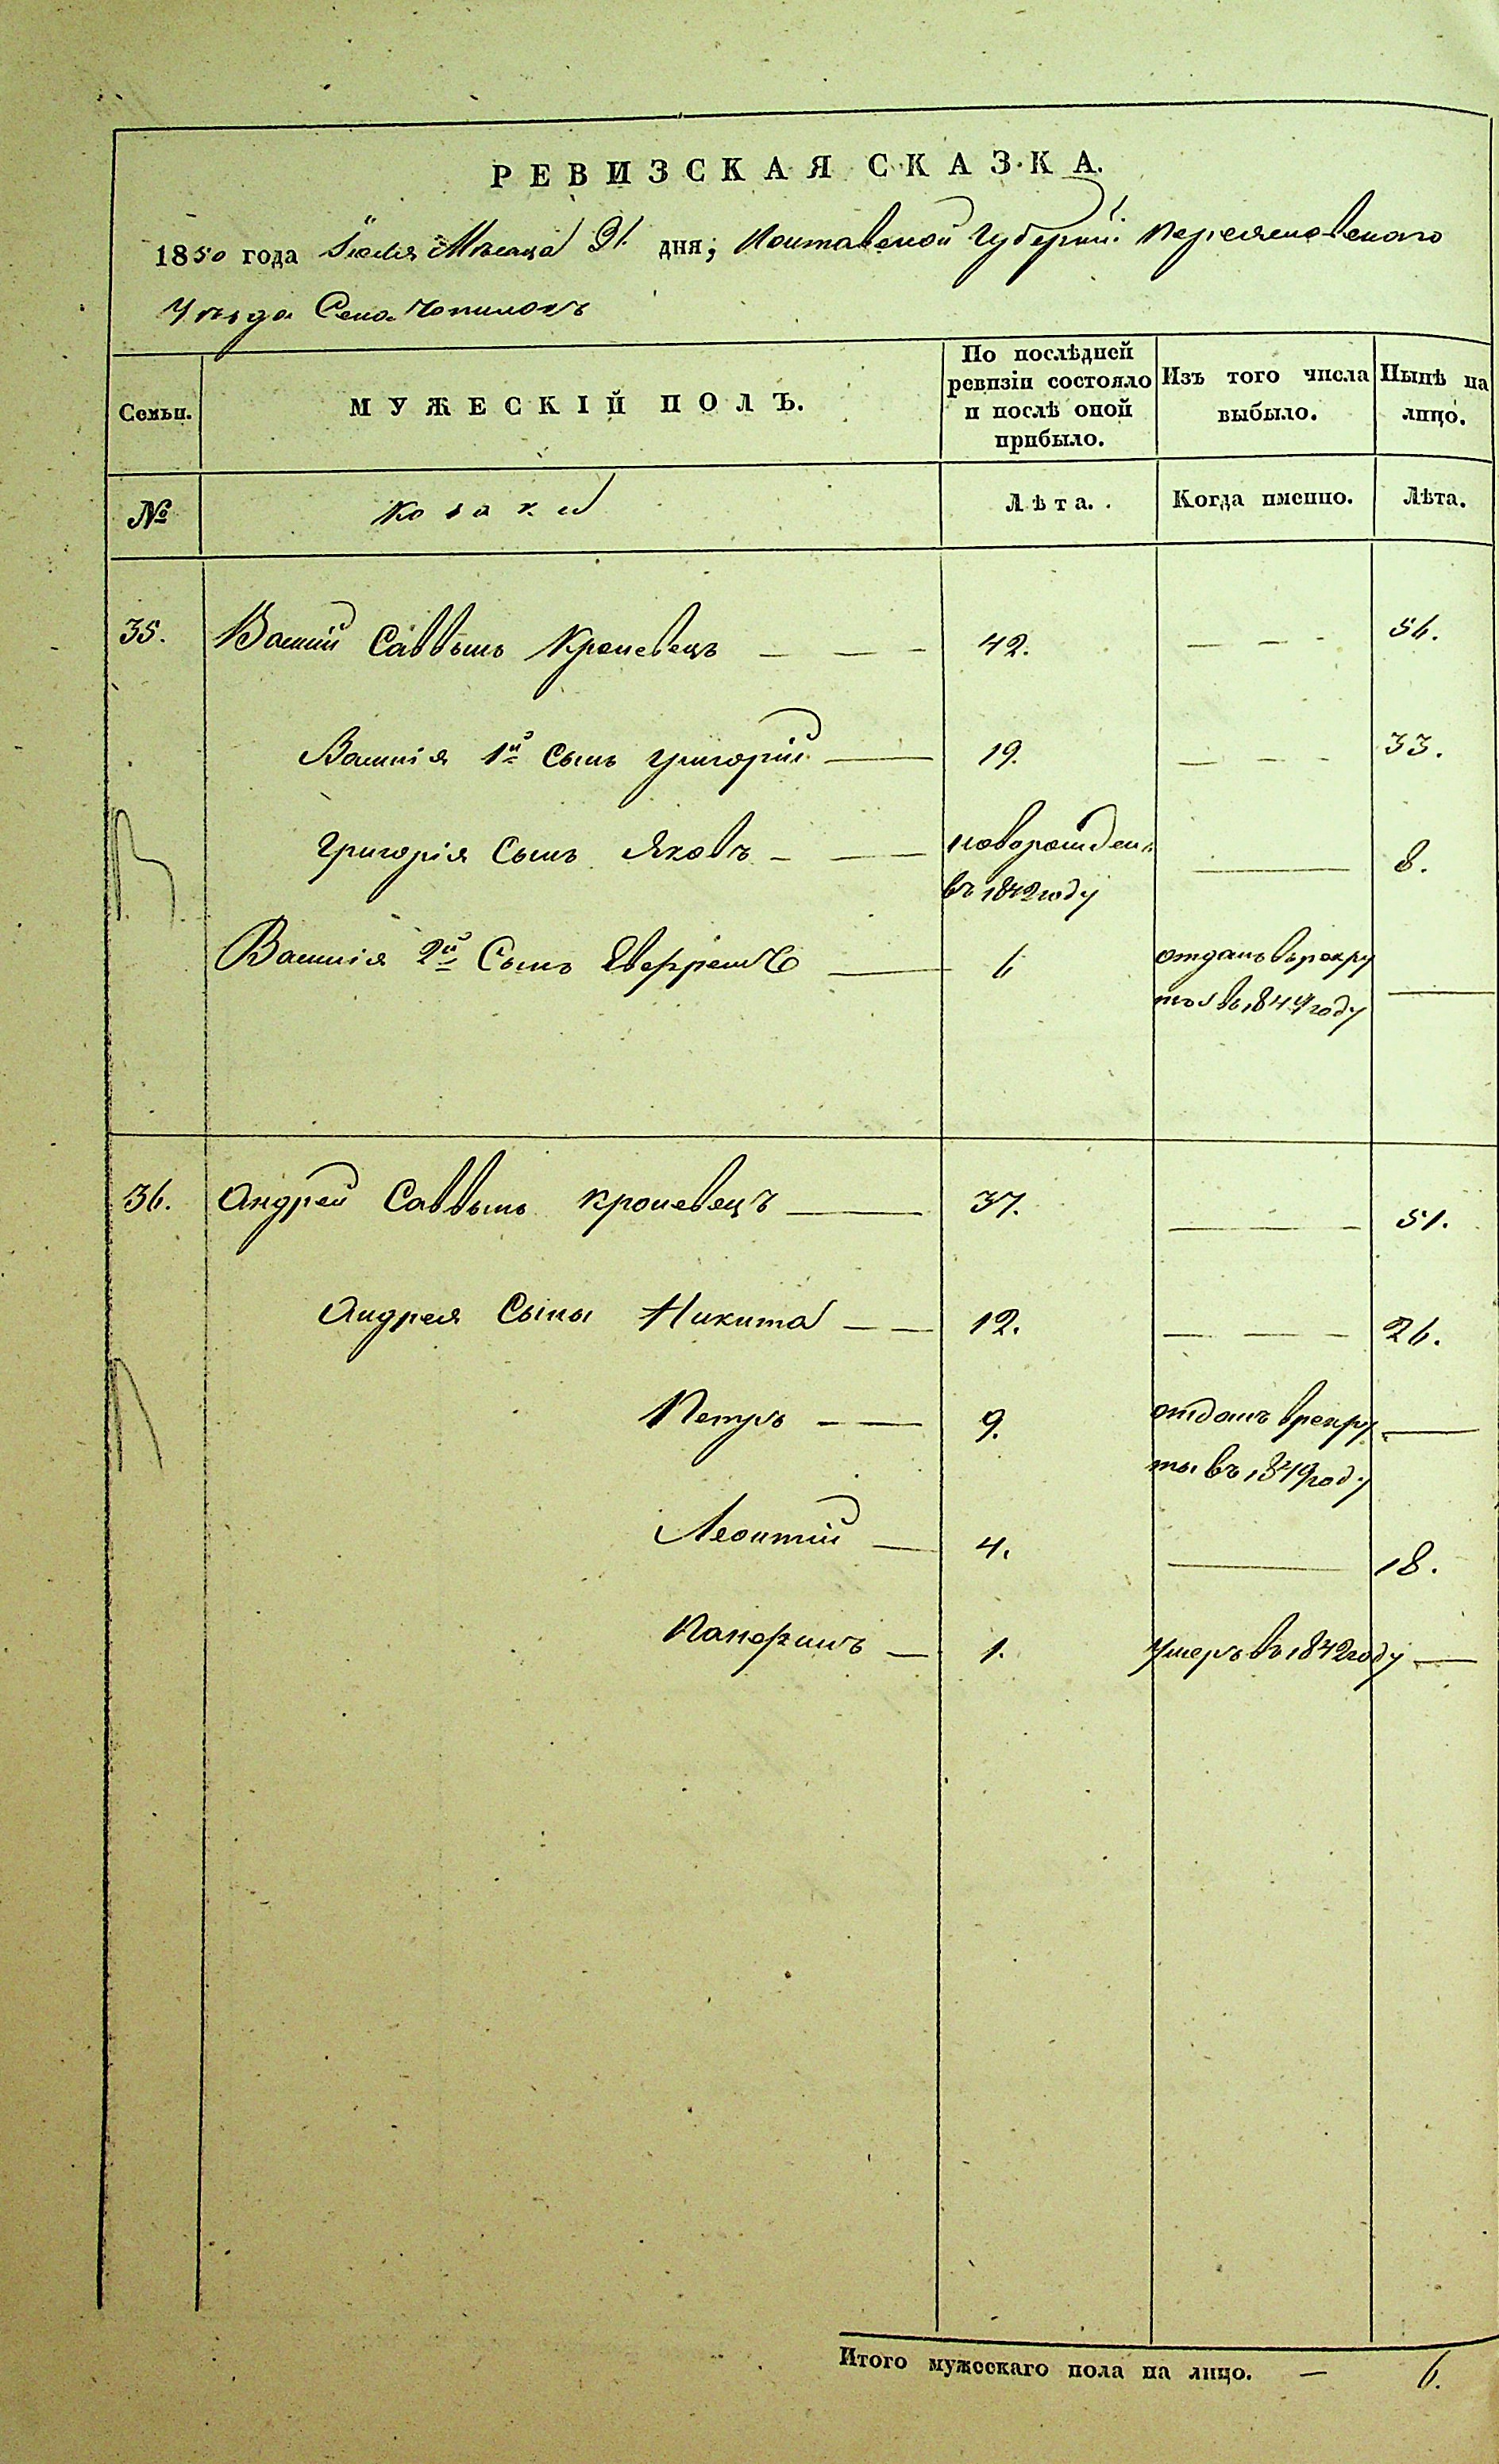 РЕВИЗСКАЯ СКАЗКА.
1850 года Іюля Месяца 31. дня; Полтавской Губерніи Переяславского
Уезда Села Чопилокъ
Семьи. МУЖЕСКІЙ ПОЛЪ. По послѣдней ревизіи состояло и послѣ оной прибыло. Изъ того числа выбыло. Нынѣ на лицо.
№ Козаки Лѣта. Когда именно. Лѣта.
35. Саввинъ Кропевецъ — — — 42. — — — 56.
1й Сынъ Григорій — 19. — — — 33.
Григорія Сынъ Яковъ — — новорожден. — 8.
въ 1842 году
2й Сынъ — 6 отданъ въ рекру
ты въ 1844 году —
36. Андрей Саввинъ Кропевецъ — 37. — — 51.
Андрея Сыны Никита — — 12. — — — 26.
Петръ — — 9. отданъ в рекру —
ты въ 1849 году
Леонтій — 4. — 18.
— 1. умеръ въ 1842 году —
Итого мужескаго пола на лицо. — 6.